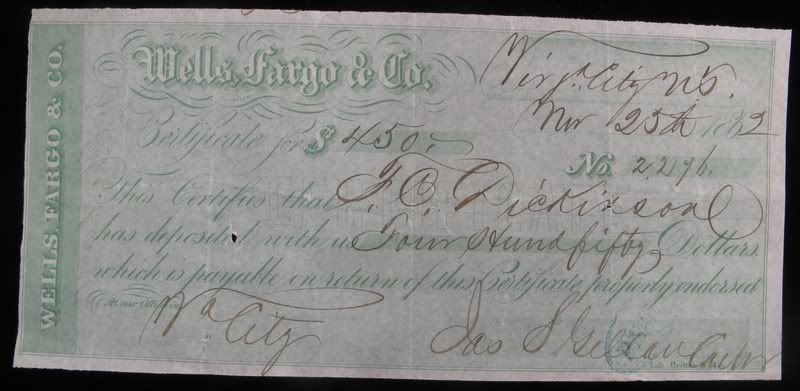 WELLS, FARGO & CO.
Wells, Fargo & Co.
Virga. City N.T.
Nov 25th 1862
Certificate for $ 450.-
No. 2,276.
This Certifies that F. C. Dickinson
has deposited with us Four Hund fifty Dollars
which is payable on return of this Certificate properly endorsed
At our Office in
Va City
Jas S